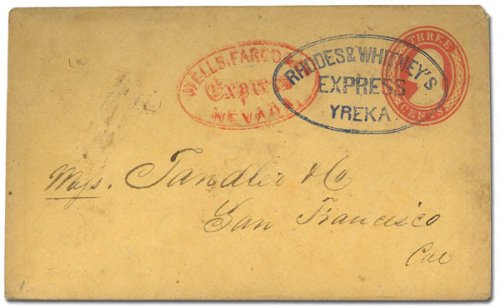 WELLS, FARGO
Express
NEVADA
RHODES & WHITNEY'S
EXPRESS
YREKA
THREE
CENTS
Mess. Tandler & Co
San Francisco
Cal